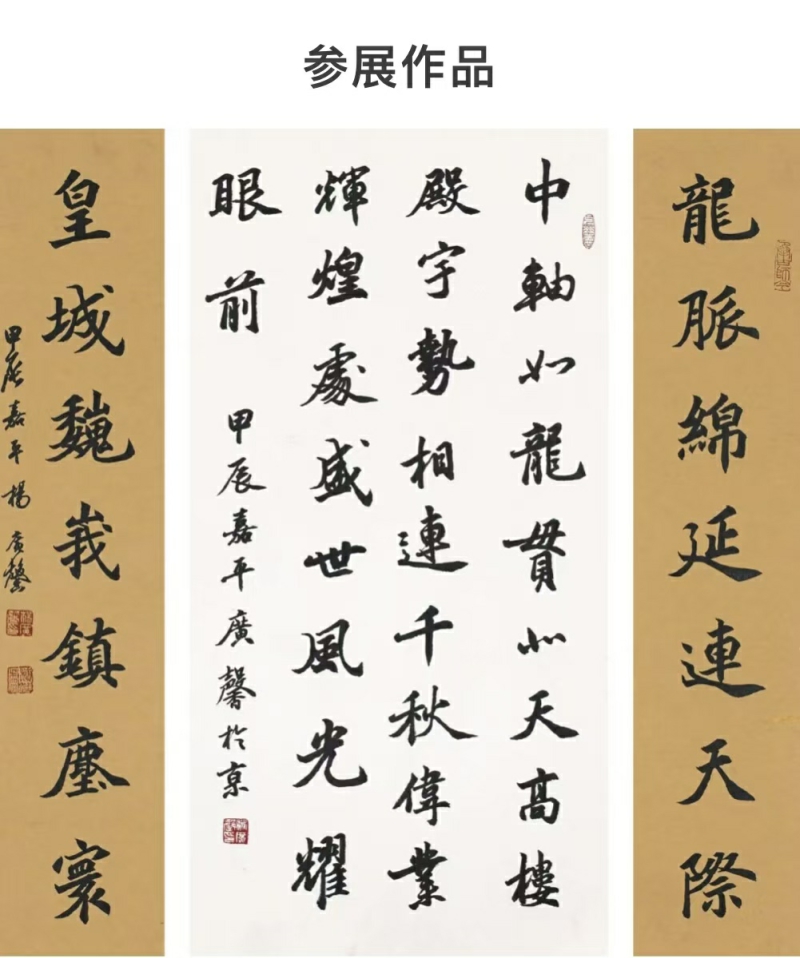 参展作品
龍脈綿延連天際
中軸如龍貫北天高樓
殿宇勢相連千秋偉業
輝煌處盛世風光耀
眼前
甲辰嘉平廣馨於京
皇城巍峩鎮塵寰
甲辰嘉平楊廣馨